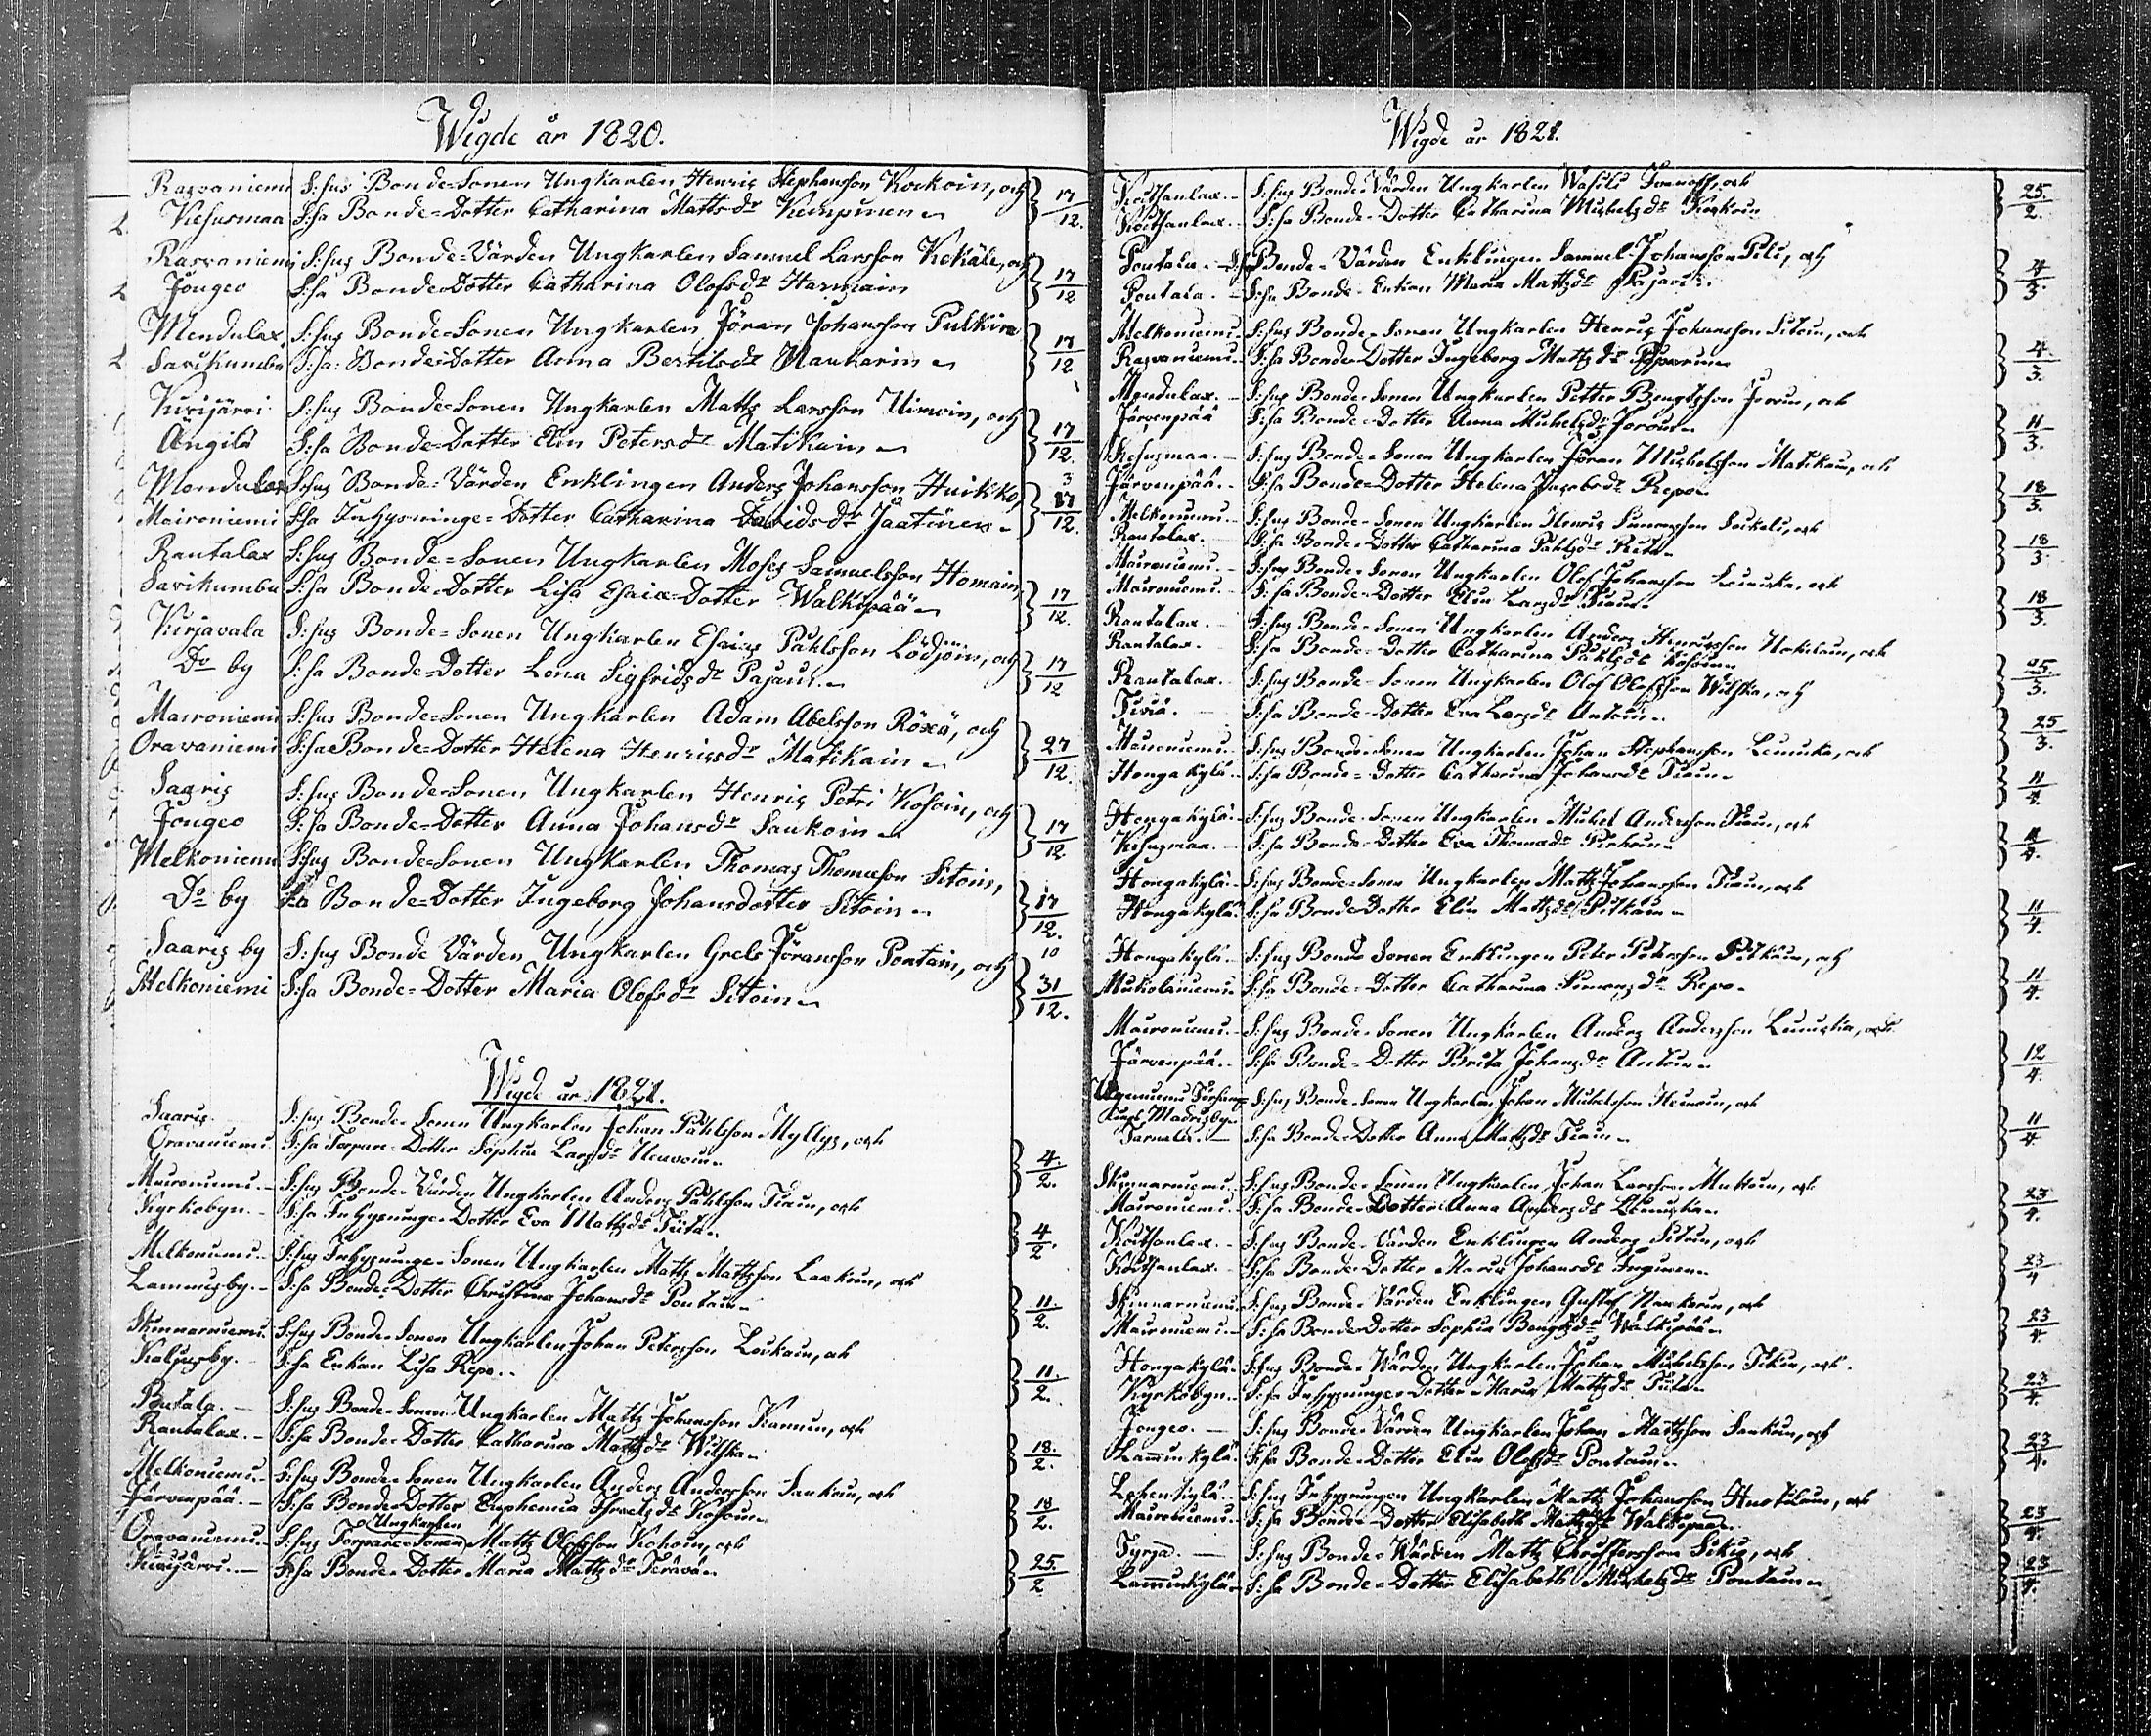 Wigde år 1820.
Rasvaniemi S:hus Bonde-Sonen Ungkarlen Henric Stephansson Kockoin, och 17/12.
Kesusmaa S:sa Bonde-Dotter Catharina Mattsdr Kemppinen
Rasvaniemi S:hus Bonde-Värden Ungkarlen Samuel Larsson Kekäle, och 17/12
Jougeo S:sa Bonde-Dotter Catharina Olofsdr Harmain
Mendulax S:hus Bonde-Sonen Ungkarlen Jöran Johansson Pulkin 17/12
Savikumbu S:sa: Bonde-Dotter Anna Bertilsdr Naukarin
Kirijärvi S:hus Bonde-Sonen Ungkarlen Matts Larsson Uimoin, och 17/12.
Ängilä S:sa Bonde-Dotter Elin Petersdr Matikain
Mendulax S:hus Bonde-Värden Enklingen Anders Johansson Huikko, 3 17/12.
Maironiemi S:sa Inhysninge-Dotter Catharina Davidsdr Jäätinen
Rautalax S:hus Bonde-Sonen Ungkarlen Moses Samuelsson Homain, 17/12.
Savikumbu S:sa Bonde-Dotter Lisa Esaiæ-Dotter Walkipää
Kirjavala S:hus Bonde-Sonen Ungkarlen Esaias Påhlsson Lödjöin, och 17/12
Do by S:sa Bonde-Dotter Lena Sigfridsdr Pajain
Maironiemi S:hus Bonde-Sonen Ungkarlen Adam Abelsson Röxä, och 27/12.
Oravaniemi S:sa Bonde-Dotter Helena Henricsdr Matikain
Saaris S:hus Bonde-Sonen Ungkarlen Henric Petri Kosoin, och 17/12.
Jougeo S:sa Bonde-Dotter Anna Johansdr Saukoin
Melkoniemi S:hus Bonde-Sonen Ungkarlen Thomas Thomasson Sitoin, 17/12.
Do by S:sa Bonde-Dotter Ingeborg Johansdotter Sitoin
Saaris by S:hus Bonde Värden Ungkarlen Grels Jöransson Pontain, och 10 31/12.
Melkoniemi S:sa Bonde-Dotter Maria Olofsdr Sitoin
Wigde år 1821.
Saaris S:hus Bonde-Sonen Ungkarlen Johan Påhlsson Myllys, och 4/2.
Oravaniemi S:sa Torpare-Dotter Sophia Larsdr Neuvoin
Maironiemi S:hus Bonde-Värden Ungkarlen Anders Påhlsson Tiain, och 4/2.
Kyrkobyn S:sa Inhysninge-Dotter Eva Mattsdr Tiita
Melkoniemi S:hus Inhysninge-Sonen Ungkarlen Matts Mattsson Laakoin, och 11/2.
Lammisby S:sa Bonde-Dotter Christina Johansdr Pontain
Skinnarniemi S:hus Bonde-Sonen Ungkarlen Johan Petersson Loikain, och 11/2.
Kaljusby S:sa Enkan Lisa Repo
Putala S:hus Bonde-Sonen Ungkarlen Matts Johansson Kiannin, och 18/2.
Rautalax S:sa Bonde-Dotter Catharina Mattsdr Wilska
Melkoniemi S:hus Bonde-Sonen Ungkarlen Anders Andersson Saukoin, och 18/2.
Järvenpää S:sa Bonde-Dotter Euphemia Israelsdr Kosoin
Oravaniemi S:hus Torpare-Sonen Ungkarlen Matts Olofsson Kohoin, och 25/2
Kirijärvi S:sa Bonde-Dotter Maria Mattsdr Terävä
Wigde år 1821.
Koitsanlax S:hus Bonde-Värden Ungkarlen Wasili Ivanoff, och 25/2.
Koitsanlax S:sa Bonde-Dotter Catharina Michelsdr Koskoin
Poutala S:hus Bonde-Värden Enklingen Samuel Johansson Pili, och 4/3.
Poutala S:sa Bonde-Enkan Maria Mattsdr Pajari
Melkoniemi S:hus Bonde-Sonen Ungkarlen Henric Johansson Sitoin, och 4/3.
Rasvaniemi S:sa Bonde-Dotter Ingeborg Mattsdr
Mendulax S:hus Bonde-Sonen Ungkarlen Petter Bengtsson Jovoin, och 11/3.
Järvenpää S:sa Bonde-Dotter Anna Michelsdr Joroin
Kesusmaa S:hus Bonde-Sonen Ungkarlen Jöran Michelsson Matikain, och 18/3.
Järvenpää S:sa Bonde-Dotter Helena Jacobsdr Repo
Melkoniemi S:hus Bonde-Sonen Ungkarlen Henric Simonsson Seikeli, och 18/3.
Rautalax S:sa Bonde-Dotter Catharina Påhlsdr
Maironiemi S:hus Bonde-Sonen Ungkarlen Olof Johansson Leiniska, och 18/3.
Maironiemi S:sa Bonde-Dotter Elin Larsdr Tiain
Rautalax S:hus Bonde-Sonen Ungkarlen Anders Henricsson Nokelain, och 25/3.
Rautalax S:sa Bonde-Dotter Catharina Påhlsdr Kosoin
Rautalax S:hus Bonde-Sonen Ungkarlen Olof Olofsson Wilska, och 25/3.
Tiviä S:sa Bonde-Dotter Eva Larsdr Antoin
Maironiemi S:hus Bonde-Sonen Ungkarlen Johan Stephansson Leiniska, och 11/4.
Hongakylä S:sa Bonde-Dotter Catharina Johansdr Tiain
Hongakylä S:hus Bonde-Sonen Ungkarlen Michel Andersson Tiain, och 11/4.
Kesusmaa S:sa Bonde-Dotter Eva Thomasdr Pirhoin
Hongakylä S:hus Bonde-Sonen Ungkarlen Matts Johansson Tiain, och 11/4.
Hongakylä S:sa Bonde-Dotter Elin Mattsdr Pitkäin
Hongakylä S:hus Bonde Sonen Enklingen Peter Petersson Pitkäin, och 11/4.
Mikolaniemi S:sa Bonde-Dotter Catharina Simonsdr Repo
Maironiemi S:hus Bonde-Sonen Ungkarlen Anders Andersson Leiniska, och 12/4.
Järvenpää S:sa Bonde-Dotter Brita Johansdr Antoin
S:hus Bonde-Sonen Ungkarlen Johan Michelsson Heinoin, och 11/4
S:sa Bonde-Dotter Anna Mattsdr Tiain
Skinnarniemi S:hus Bonde-Sonen Ungkarlen Johan Larsson Muktoin, och 23/4.
Maironiemi S:sa Bonde-Dotter Anna Andersdr Leiniska
Koitsanlax S:hus Bonde-Värden Enklingen Anders Sitoin, och 23/4
Koitsanlax S:sa Bonde-Dotter Maria Johansdr Inginen
Skinnarniemi S:hus Bonde-Värden Enklingen Gustaf Naukarin, och 23/4.
Maironiemi S:sa Bonde-Dotter Sophia Bengtsdr Walkipää
Hongakylä S:hus Bonde-Värden Ungkarlen Johan Michelsson Tikin, och 23/4.
Kyrkobyn S:sa Inhysninge-Dotter Maria Mattsdr Tiita
Jougeo S:hus Bonde-Värden Ungkarlen Johan Mattsson Saukoin, och 23/4.
Laminkylä S:sa Bonde-Dotter Elin Olofsdr Pontain
S:hus Inhysningen Ungkarlen Matts Johansson Huotilain, och 23/4.
Maironiemi S:sa Bonde-Dotter Elisabeth Mattsdr Walkipää
Tyrjä S:hus Bonde-Värden Matts Christersson Sikiö, och 23/4.
Laminkylä S:sa Bonde-Dotter Elisabeth Michelsdr Pontain